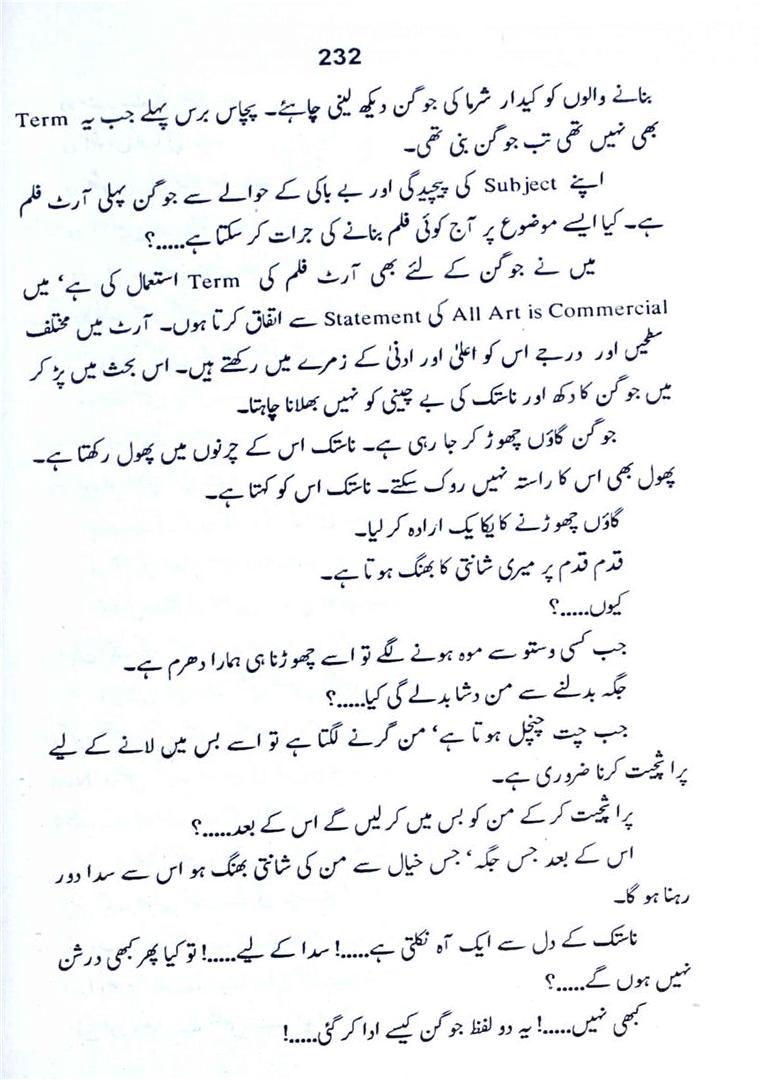 232
بنانے والوں کو کیدار شرما کی جوگن دیکھ لینی چاہئے۔ پچاس برس پہلے جب یہ Term
بھی نہیں تھی تب جوگن بنی تھی۔
اپنے Subject کی پیچیدگی اور بے باکی کے حوالے سے جوگن پہلی آرٹ فلم
ہے۔ کیا ایسے موضوع پر آج کوئی فلم بنانے کی جرات کر سکتا ہے.....؟
میں نے جوگن کے لئے بھی آرٹ فلم کی Term استعمال کی ہے‘ میں
All Art is Commercial کی Statement سے اتفاق کرتا ہوں۔ آرٹ میں مختلف
سطحیں اور درجے اس کو اعلیٰ اور ادنیٰ کے زمرے میں رکھتے ہیں۔ اس بحث میں پڑ کر
میں جوگن کا دکھ اور ناستک کی بے چینی کو نہیں بھلانا چاہتا۔
جوگن گاؤں چھوڑ کر جا رہی ہے۔ ناستک اس کے چرنوں میں پھول رکھتا ہے۔
پھول بھی اس کا راستہ نہیں روک سکتے۔ ناستک اس کو کہتا ہے۔
گاؤں چھوڑنے کا یکایک ارادہ کر لیا۔
قدم قدم پر میری شانتی کا بھنگ ہوتا ہے۔
کیوں.....؟
جب کسی وستو سے موہ ہونے لگے تو اسے چھوڑنا ہی ہمارا دھرم ہے۔
جگہ بدلنے سے من دشا بدلے گی کیا.....؟
جب چت چنچل ہوتا ہے‘ من گرنے لگتا ہے تو اسے بس میں لانے کے لیے
پراشچیت کرنا ضروری ہے۔
پراشچیت کر کے من کو بس میں کر لیں گے اس کے بعد.....؟
اس کے بعد جس جگہ‘ جس خیال سے من کی شانتی بھنگ ہو اس سے سدا دور
رہنا ہو گا۔
ناستک کے دل سے ایک آہ نکلتی ہے.....! سدا کے لیے.....! تو کیا پھر کبھی درشن
نہیں ہوں گے.....؟
کبھی نہیں.....! یہ دو لفظ جوگن کیسے ادا کر گئی.....!